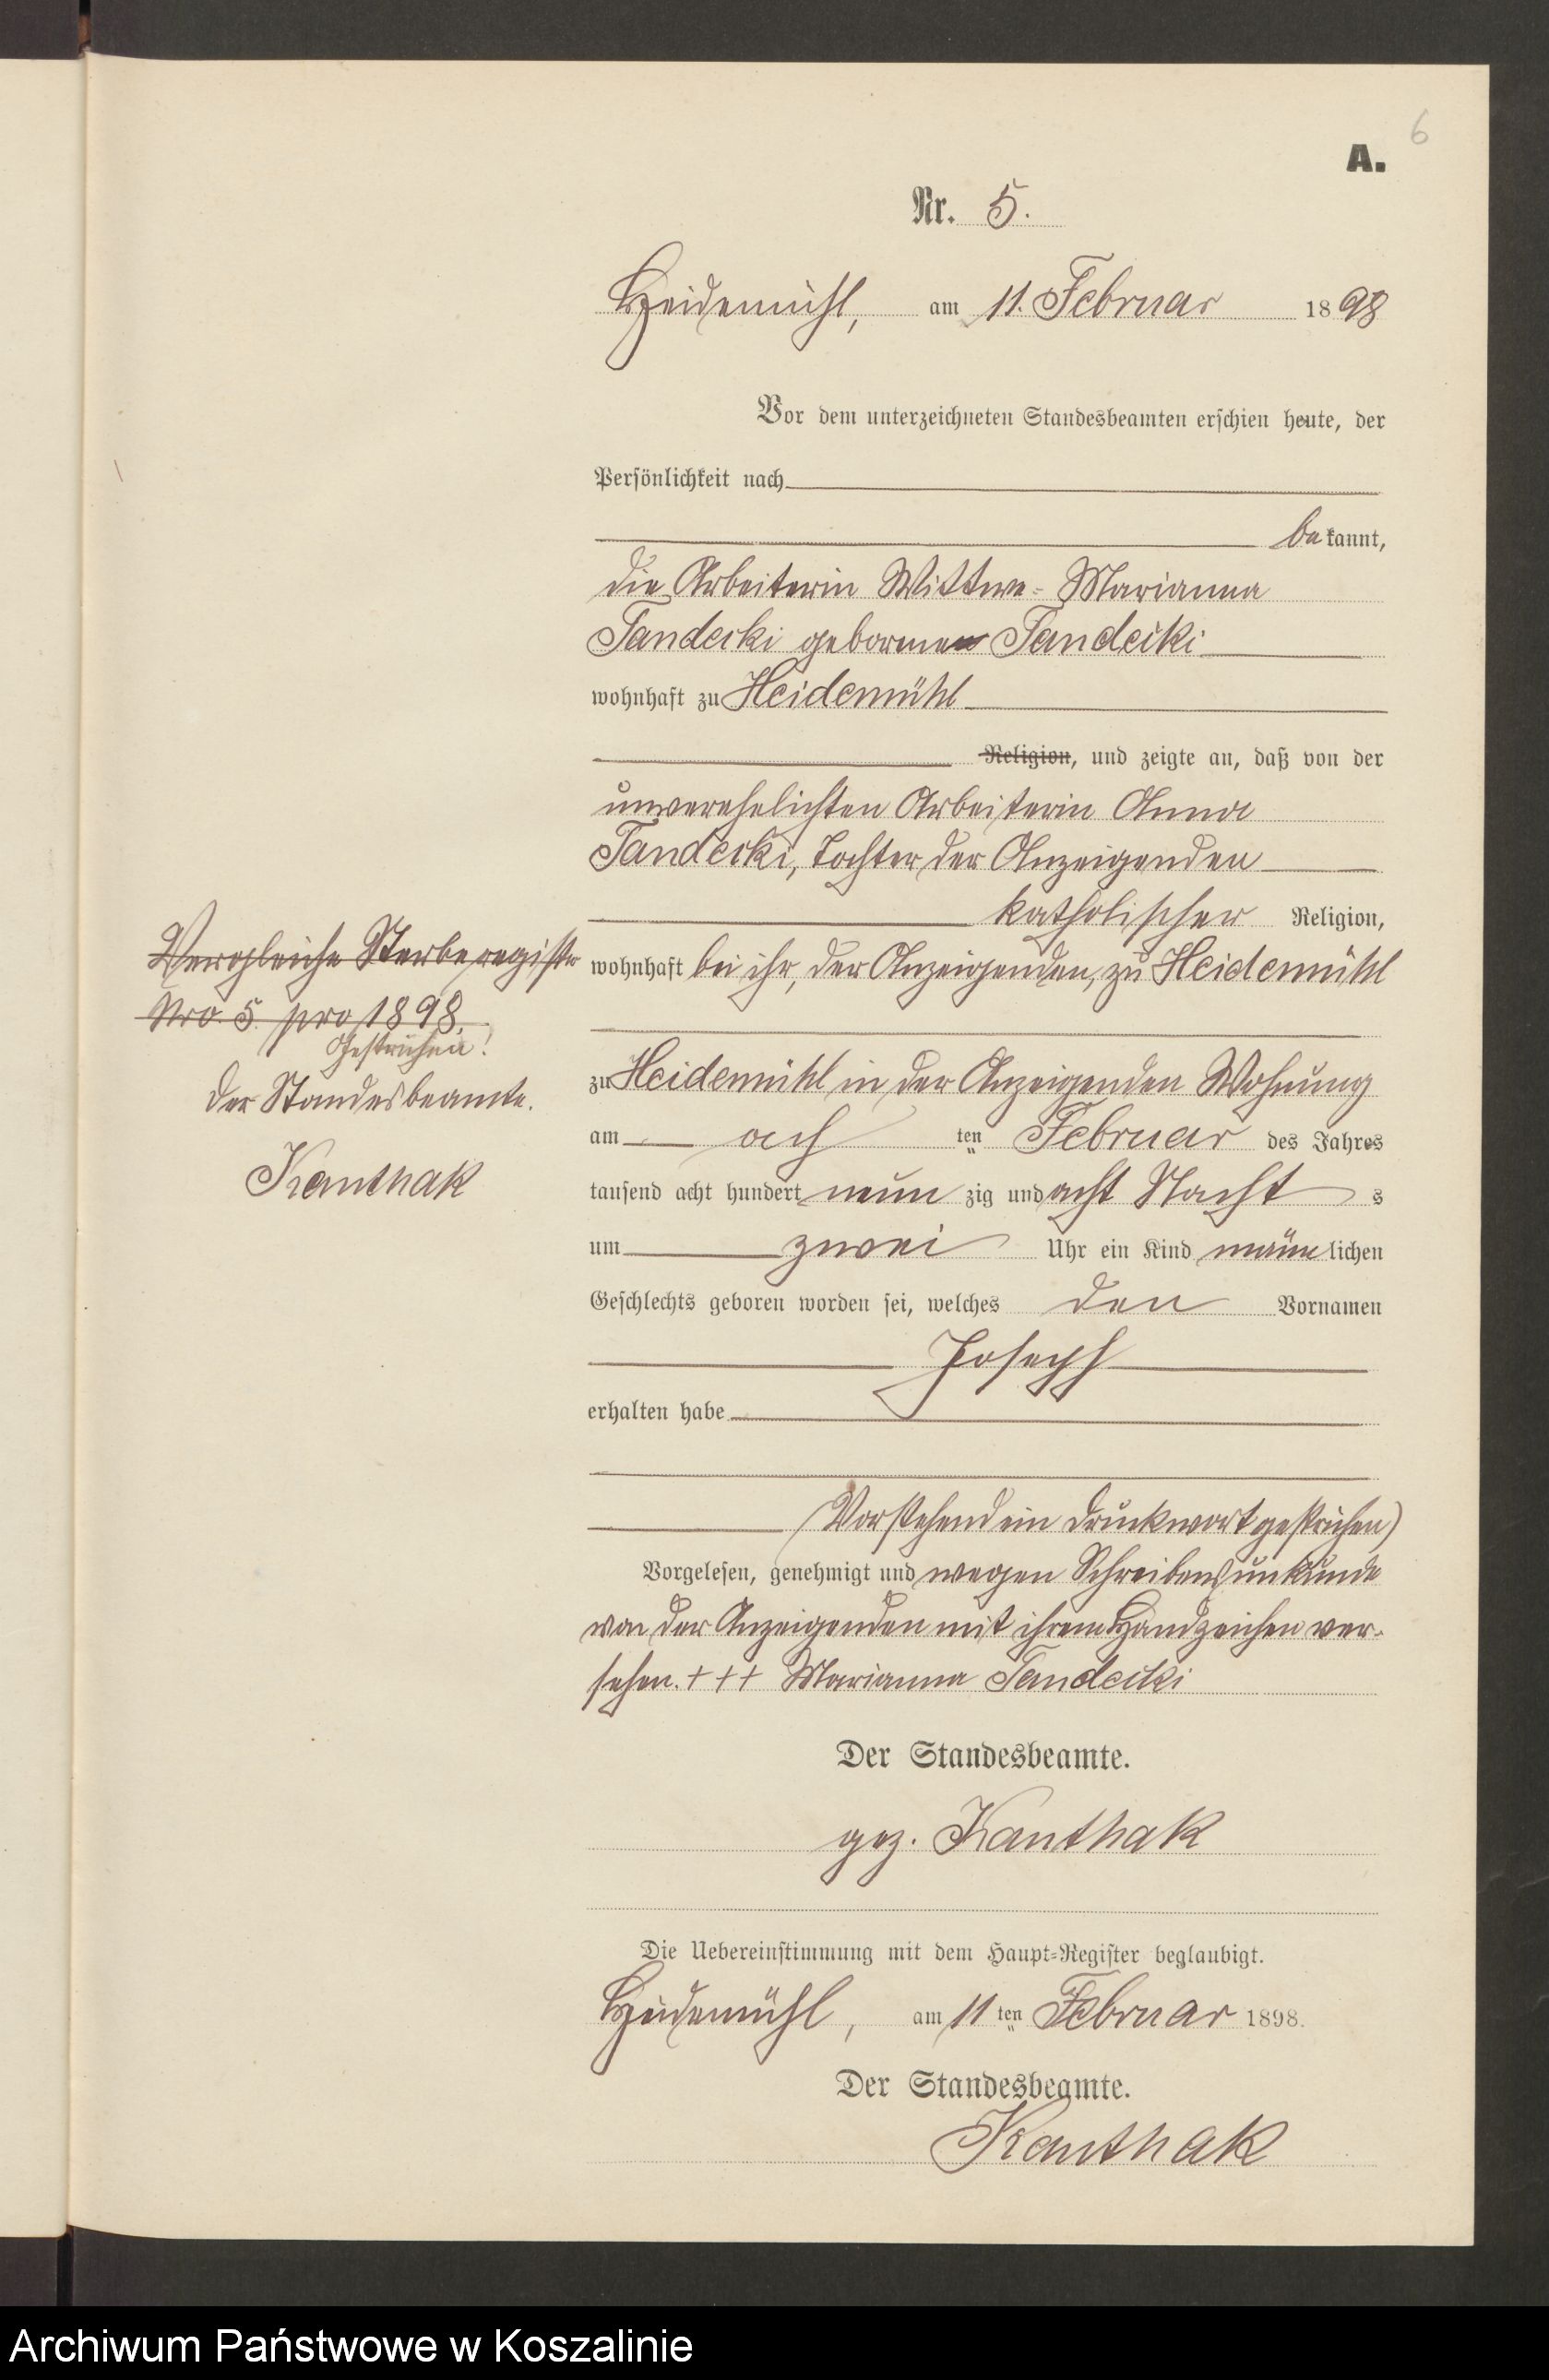 6
A.
Nr. 5.
Heidemühl, am 11. Februar 1898
Vor dem unterzeichneten Standesbeamten erschien heute, der
Persönlichkeit nach
bekannt,
die Arbeiterin Wittwe Marianna
Tandecki geborene Tandecki
wohnhaft zu Heidemühl
Religion, und zeigte an, daß von der
unverehelichten Arbeiterin Anna
Tandecki, Tochter der Anzeigenden
katholischer Religion,
wohnhaft bei ihr, der Anzeigenden, zu Heidemühl
zu Heidemühl in der Anzeigenden Wohnung
am ach ten Februar des Jahres
tausend acht hundert neun zig und acht Nacht s
um zwei Uhr ein Kind männlichen
Geschlechts geboren worden sei, welches den Vornamen
Joseph
erhalten habe
(Vorstehend ein Druckwort gestrichen)
Vorgelesen, genehmigt und wegen Schreibensunkunde
von der Anzeigenden mit ihrem Handzeichen ver-
sehen. + + + Marianna Tandecki
Der Standesbeamte.
gez. Kanthak
Die Uebereinstimmung mit dem Haupt-Register beglaubigt.
Heidemühl, am 11 ten Februar 1898.
Der Standesbeamte.
Kanthak
Vergleiche Sterberegister
Nro. 5 pro 1898.
Gestrichen!
Der Standesbeamte.
Kanthak
Archiwum Państwowe w Koszalinie